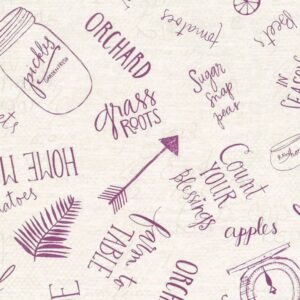 tomatoes
Beets
ORCHARD
pickly
GARDEN FRESH
Sugar
snap
peas
IN
grass
ROOTS
HOME M
Count
YOUR
Blessings
farm to
TABLE
apples
ORC